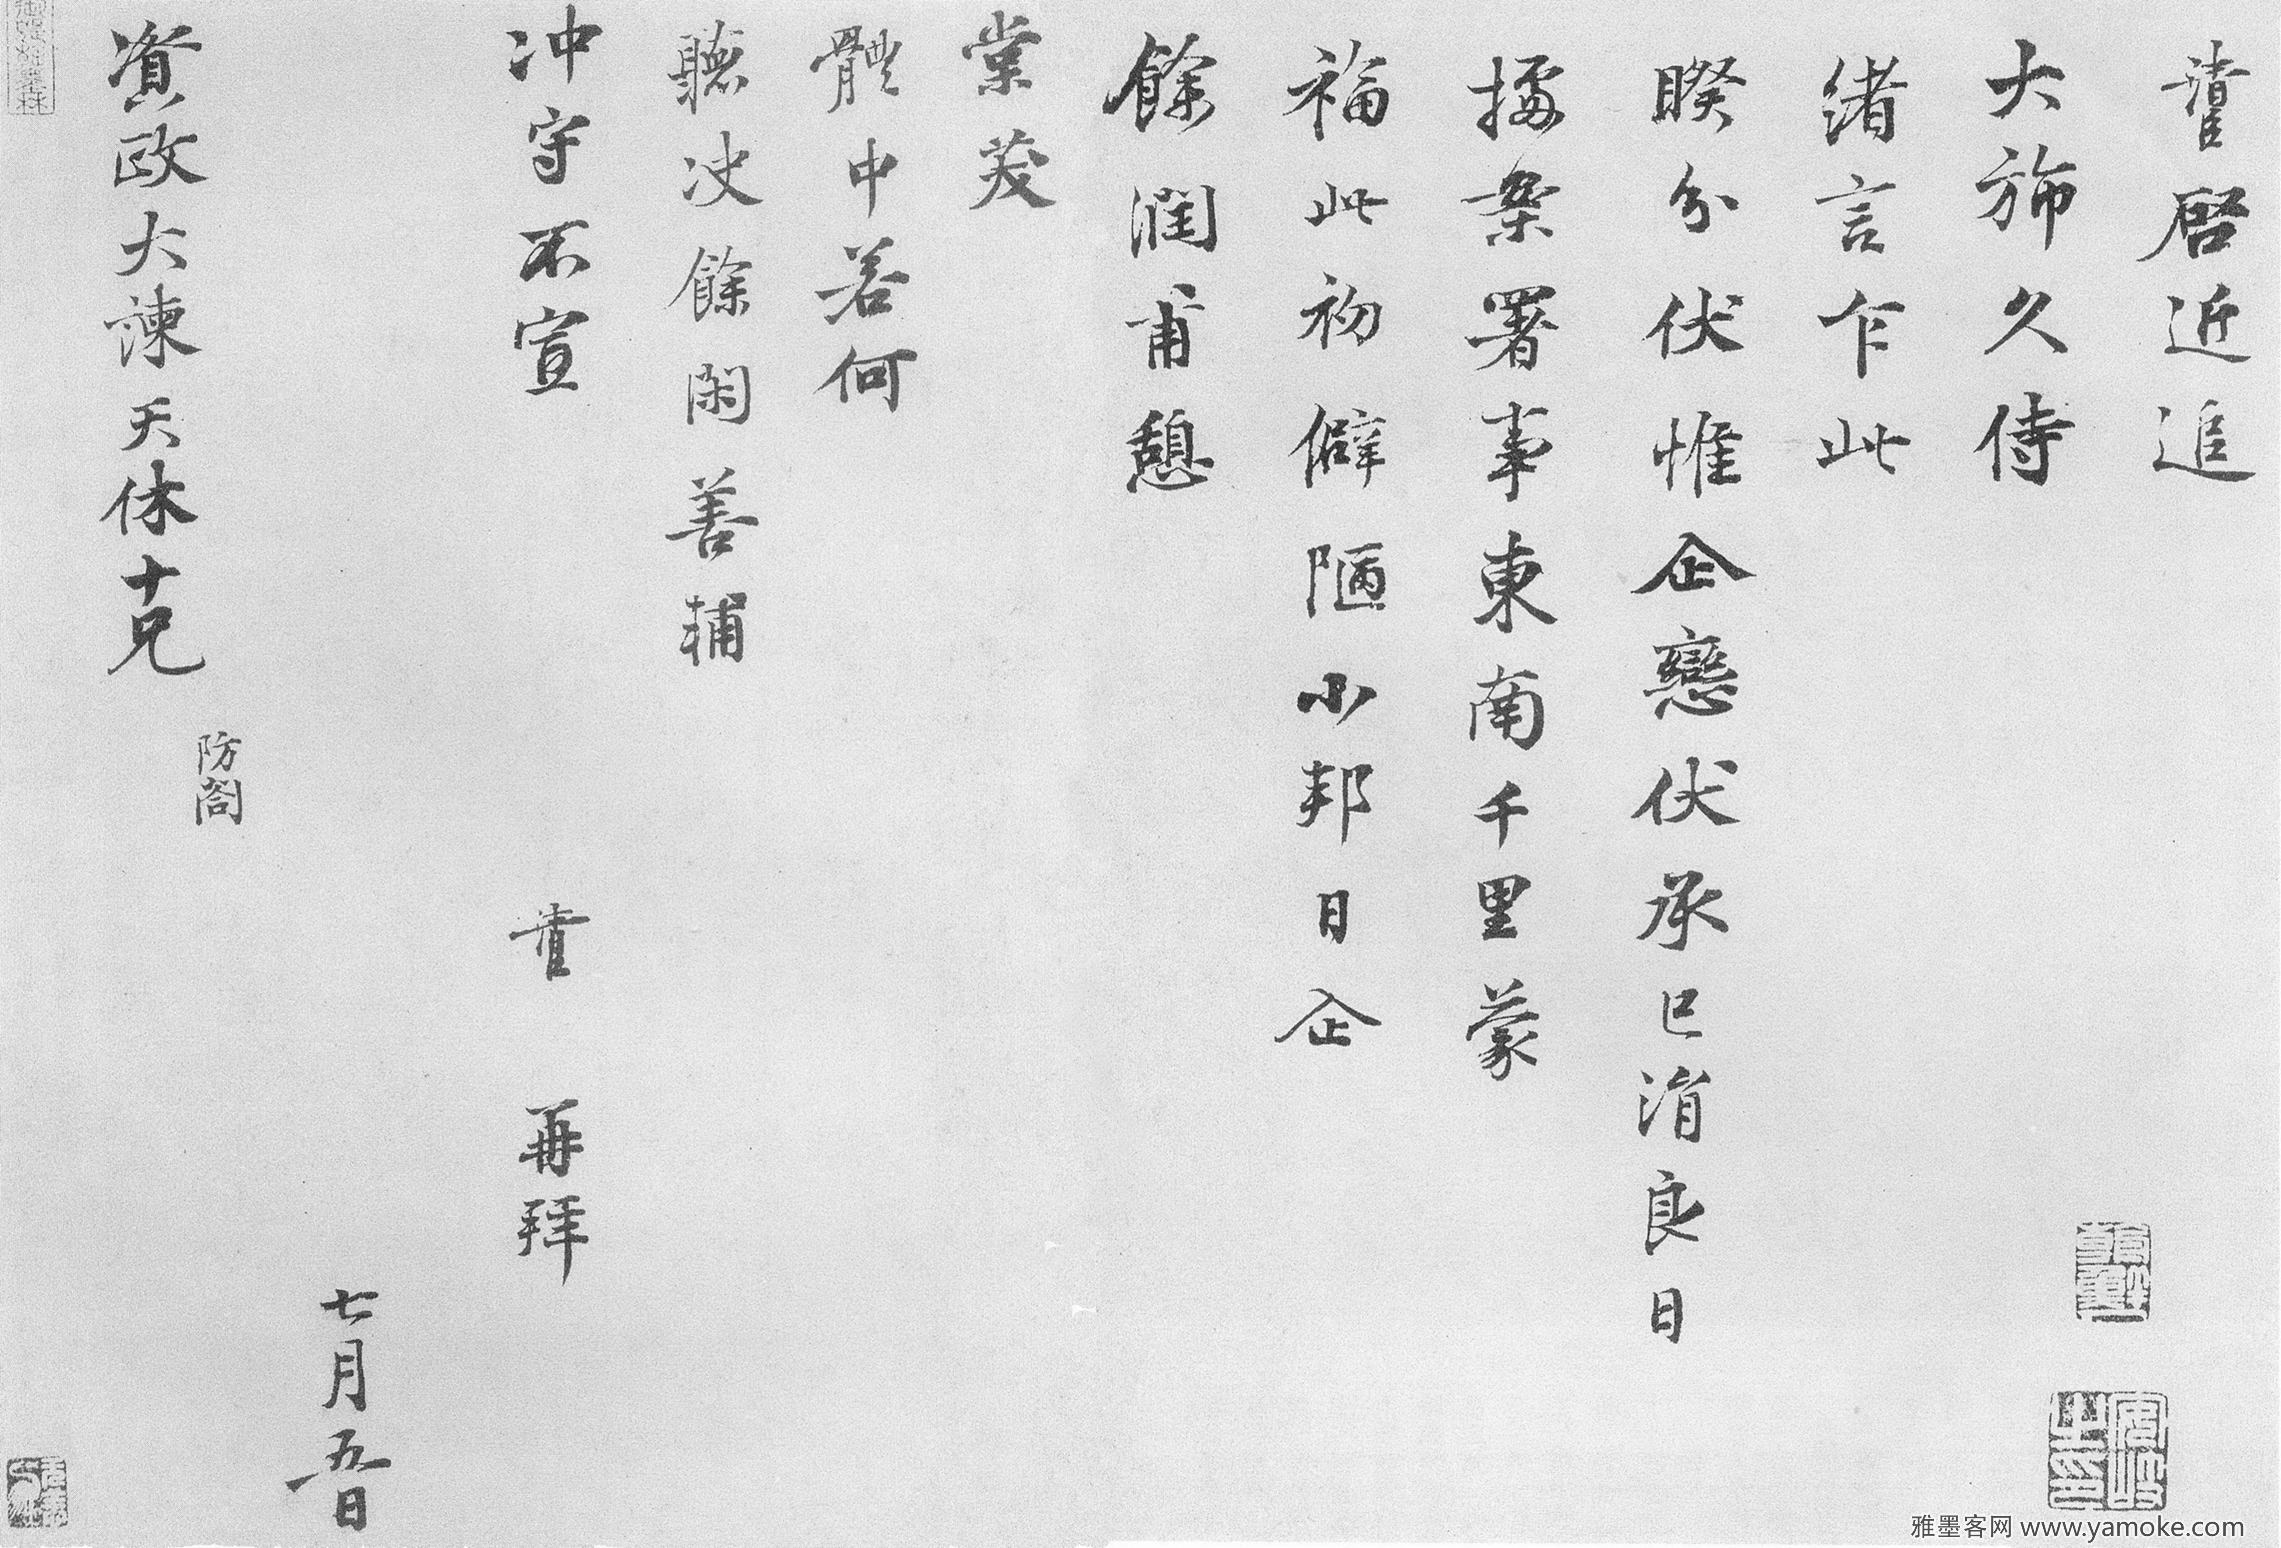 清臣啓近追
大旆久侍
緒言乍此
睽分伏惟企戀伏承已涓良日
據案署事東南千里蒙
福此初僻陋小邦日企
餘潤甫憩
棠茇
體中若何
聽决餘閑善輔
冲守不宣 清臣 再拜
七月五日
資政大諫天休十兄 防閤
雅墨客网 www.yamoke.com